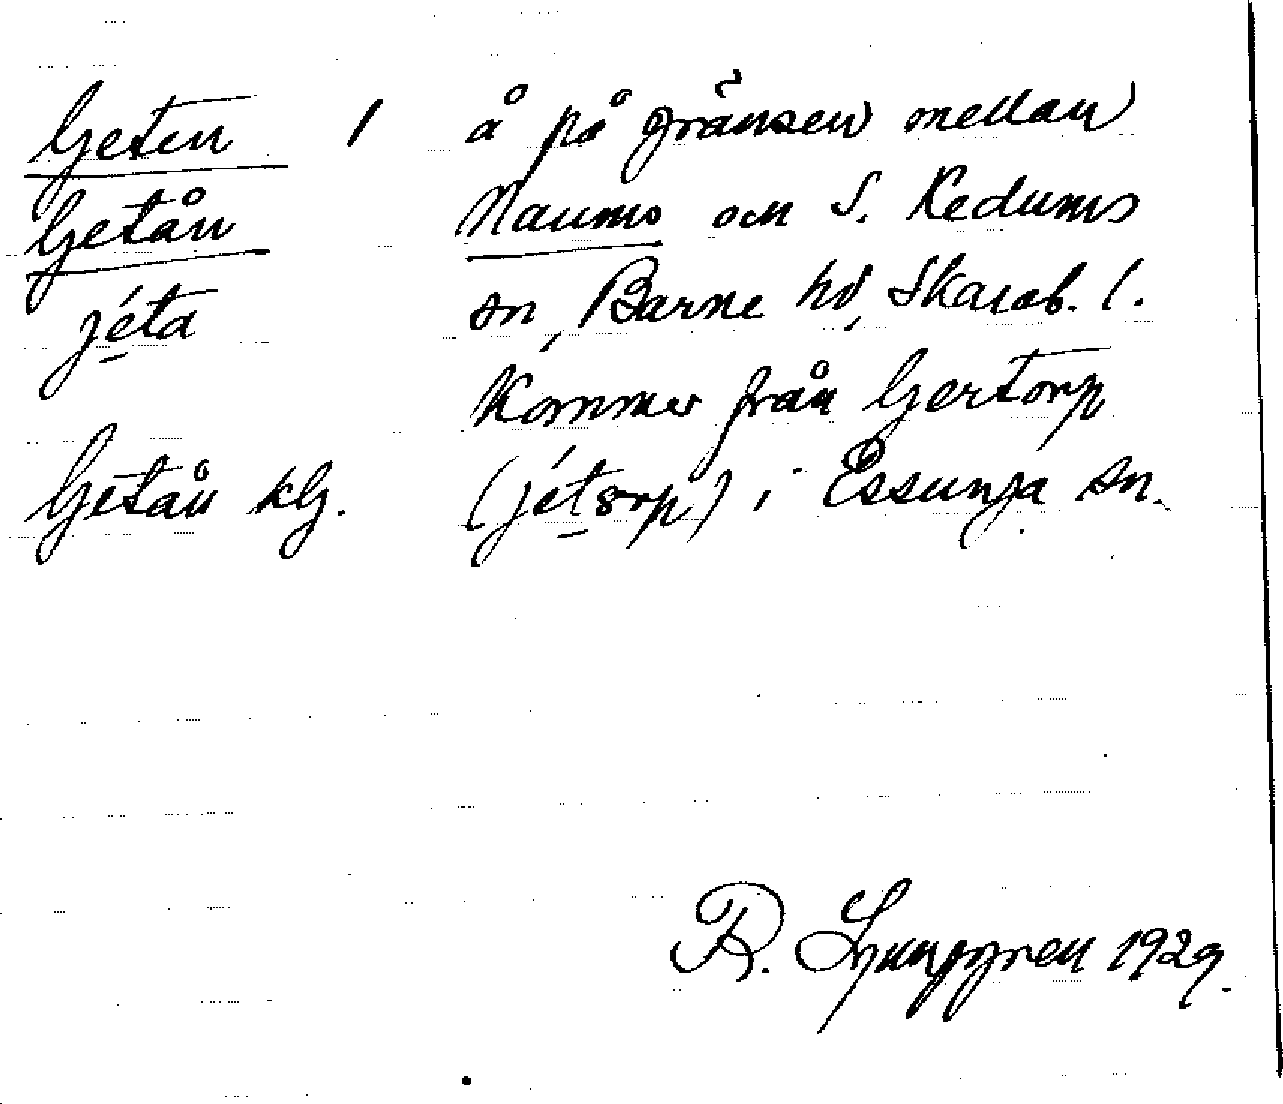 Geten / å på gränsen mellan
Getån Naums och S. Kedums
jéta sn, Barne hd, Skarab. l.
Kommer från Gertorp
Getån klg. (jétsrp) i Essunga sn.
R. Ljunggren 1929.